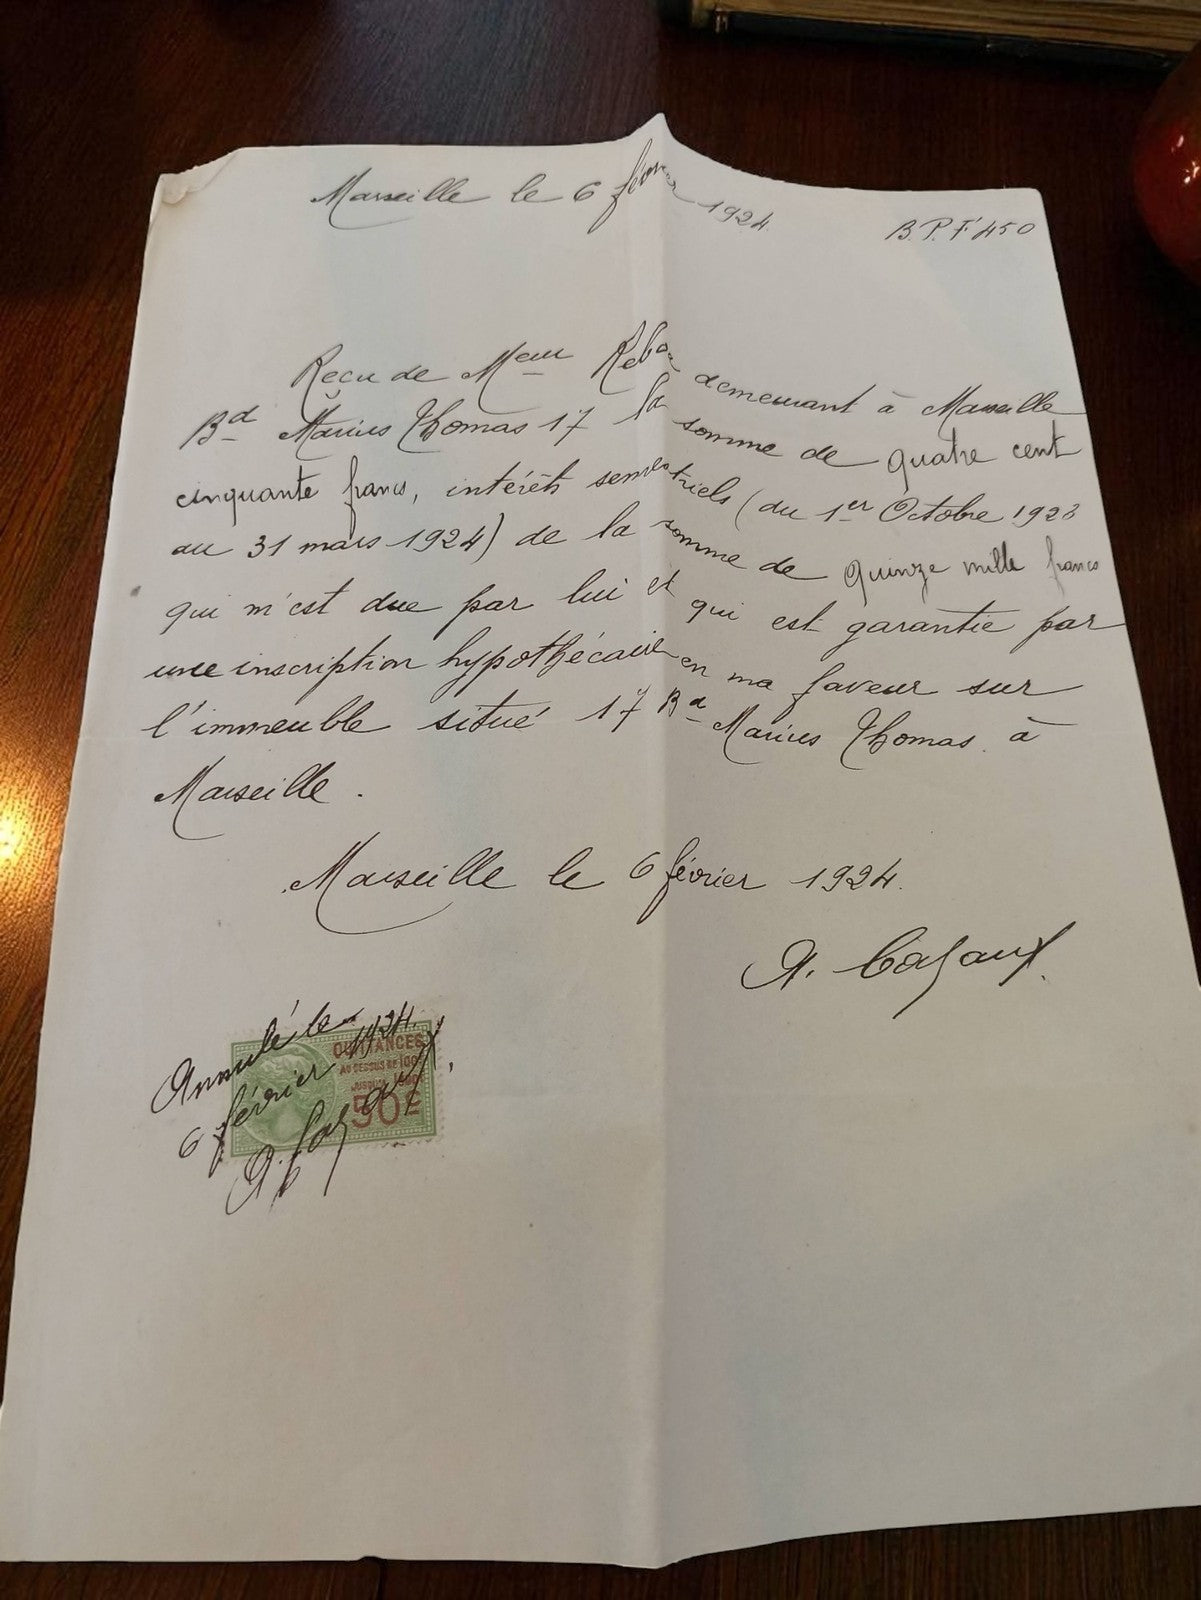 Marseille le 6 février 1924
B.P.F 450
Reçu de Meur Rebo demeurant à Marseille
Bd Marius Thomas 17 la somme de quatre cent
cinquante francs, intérêts semestriels (du 1er Octobre 1923
au 31 mars 1924) de la somme de quinze mille francs
qui m'est due par lui et qui est garantie par
une inscription hypothécaire en ma faveur sur
l'immeuble situé 17 Bd Marius Thomas à
Marseille.
Marseille le 6 février 1924.
A. Cazaux.
Annulé le
6 février 1924.
A. Cazaux.
QUITTANCES
AU DESSUS DE 100F
JUSQU'A 1000F
50c